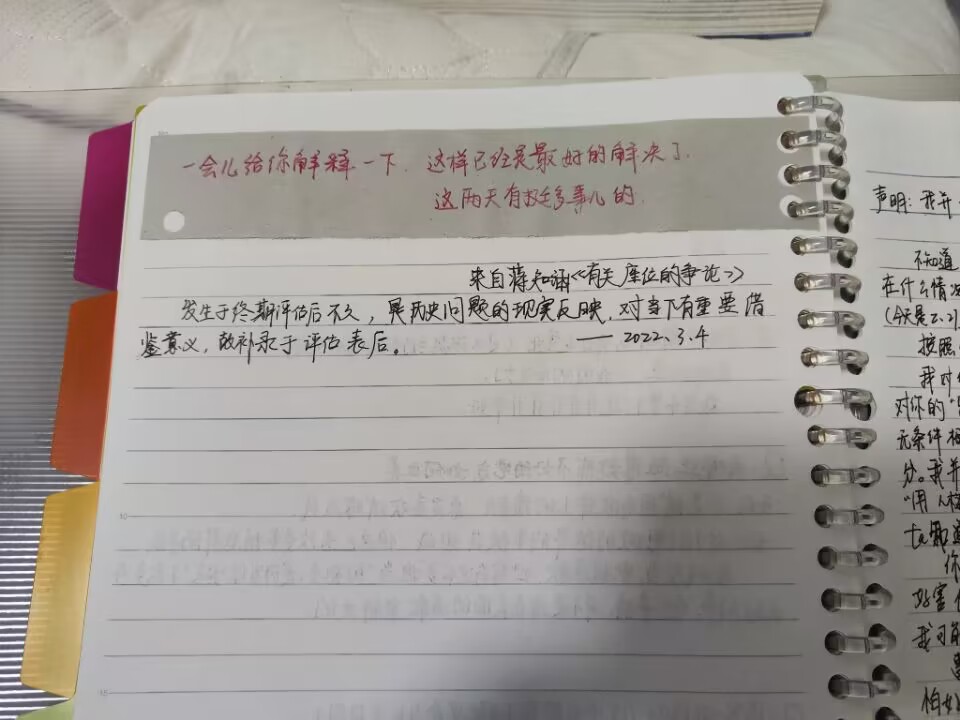 一会儿给你解释一下. 这样已经是最好的解决了.
这两天有挺多事儿的.
来自蒋知涵《有关座位的争论》
发生于终期评估后不久，是历史问题的现实反映，对当下有重要借
鉴意义，故补录于评估表后。 —— 2022.3.4
声明：我并
不知道
在什么情况
(今天是2.2)
按照
我对
对你的"
无条件
分。我并
"用人
ta知道
你
好害
我可能
怕